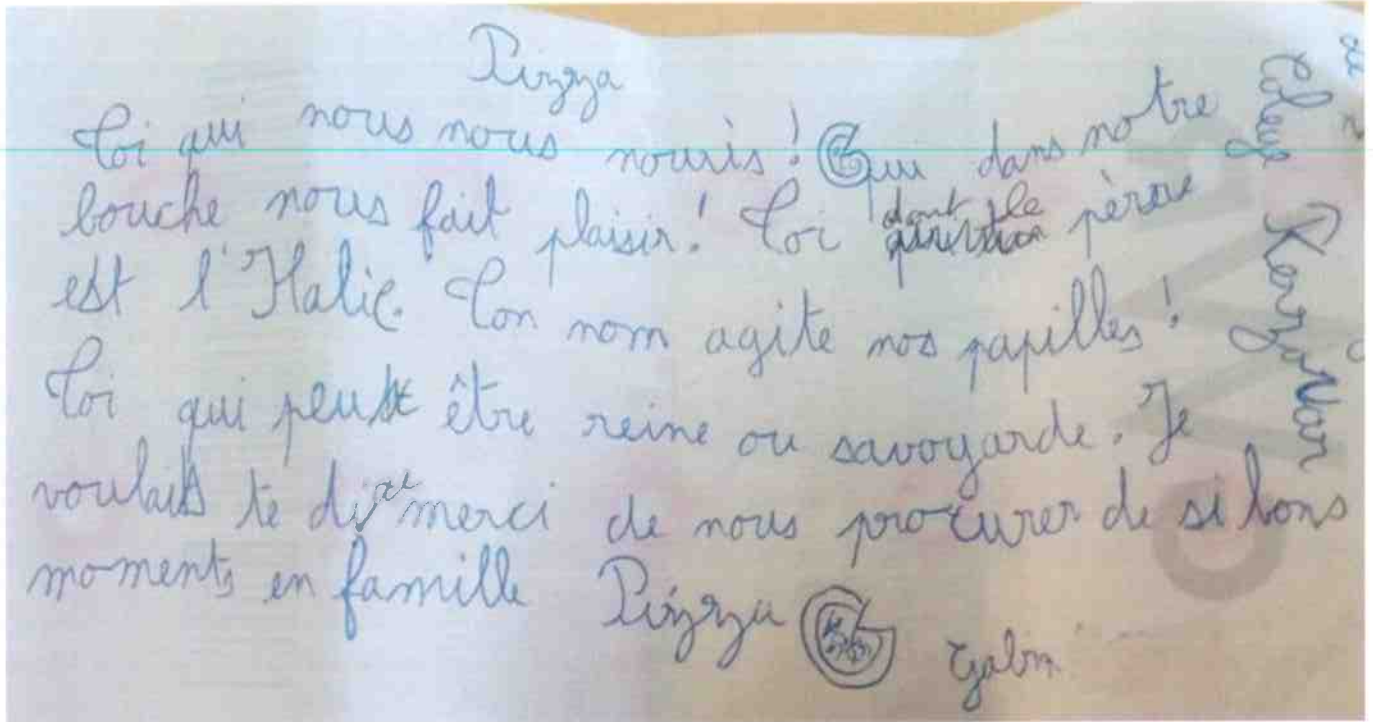 Pizza
Toi qui nous nous nouris! Qui dans notre
bouche nous fait plaisir! Toi dont le père
est l'Italie. Ton nom agite nos papilles!
Toi qui peut être reine ou savoyarde. Je
voulais te dire merci de nous procurer de si bons
moments en famille Pizza
Gabin
Collège Kerzouar